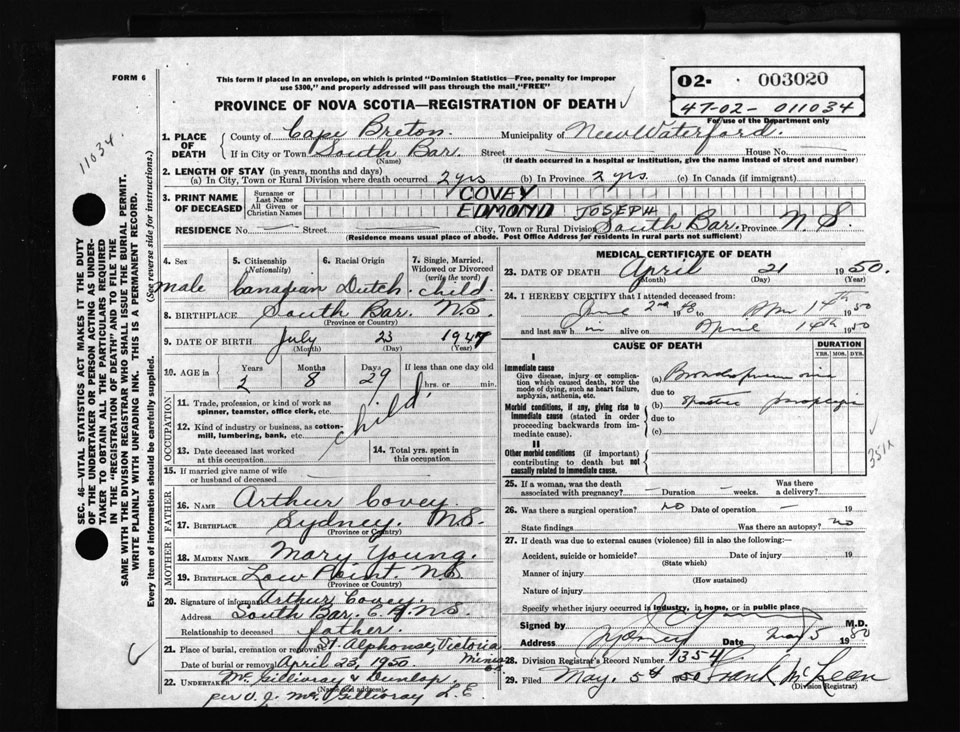 FORM 6
This form if placed in an envelope, on which is printed "Dominion Statistics—Free, penalty for improper
use $300," and properly addressed will pass through the mail "FREE"
O2- 003020
47-02- 011034
For use of the Department only
PROVINCE OF NOVA SCOTIA—REGISTRATION OF DEATH
11034
1. PLACE OF DEATH
County of Cape Breton. Municipality of New Waterford.
If in City or Town South Bar. Street House No.
(Name) (If death occurred in a hospital or institution, give the name instead of street and number)
2. LENGTH OF STAY (in years, months and days)
(a) In City, Town or Rural Division where death occurred 2 yrs (b) In Province 2 yrs. (c) In Canada (if immigrant)
3. PRINT NAME OF DECEASED
Surname or Last Name COVEY
All Given or Christian Names EDMOND JOSEPH
RESIDENCE No. Street City, Town or Rural Division South Bar. Province N.S
(Residence means usual place of abode. Post Office Address for residents in rural parts not sufficient)
4. Sex 5. Citizenship (Nationality) 6. Racial Origin 7. Single, Married, Widowed or Divorced (write the word)
male Canadian Dutch. child.
8. BIRTHPLACE South Bar. N.S.
(Province or Country)
9. DATE OF BIRTH July 23 1947
(Month) (Day) (Year)
10. AGE in Years Months Days If less than one day old
2 8 29 hrs. or min.
OCCUPATION
11. Trade, profession, or kind of work as
spinner, teamster, office clerk, etc.
child.
12. Kind of industry or business, as cotton-
mill, lumbering, bank, etc.
13. Date deceased last worked
at this occupation
14. Total yrs. spent in
this occupation.
15. If married give name of wife
or husband of deceased
FATHER
16. NAME Arthur Covey.
17. BIRTHPLACE Sydney. N.S.
(Province or Country)
MOTHER
18. MAIDEN NAME Mary Young.
19. BIRTHPLACE Low Point. N.S
(Province or Country)
20. Signature of informant Arthur Covey.
Address South Bar. C.B. N.S.
Relationship to deceased father.
21. Place of burial, cremation or removal St. Alphonse, Victoria Mines
Date of burial or removal April 23, 1950.
22. UNDERTAKER McGillivray & Dunlop.
(Name and address)
per McGillivray L.E
MEDICAL CERTIFICATE OF DEATH
23. DATE OF DEATH April 21 1950.
(Month) (Day) (Year)
24. I HEREBY CERTIFY that I attended deceased from:
June 2nd 14th 1950
and last saw him alive on April 14th 1950
CAUSE OF DEATH
DURATION
YRS. MOS. DYS.
I
Immediate cause
Give disease, injury or complica-
tion which caused death, NOT the
mode of dying, such as heart failure,
asphyxia, asthenia, etc.
(a) Bronchopneumonia
due to
Morbid conditions, if any, giving rise to
immediate cause (stated in order
proceeding backwards from im-
mediate cause).
(b) Spastic paraplegia
due to
(c)
II
Other morbid conditions (if important)
contributing to death but not
causally related to immediate cause.
25. If a woman, was the death
associated with pregnancy? Duration weeks. Was there
a delivery?
26. Was there a surgical operation? no Date of operation — 19
State findings Was there an autopsy? no
27. If death was due to external causes (violence) fill in also the following:—
Accident, suicide or homicide? Date of injury 19
(State which)
Manner of injury
(How sustained)
Nature of injury
Specify whether injury occurred in industry, in home, or in public place
Signed by M.D.
Address Sydney Date May 5 1950
28. Division Registrar's Record Number 1354
29. Filed May. 5th 1950 Frank McLean
(Division Registrar)
SEC. 46—VITAL STATISTICS ACT MAKES IT THE DUTY
OF THE UNDERTAKER OR PERSON ACTING AS UNDER-
TAKER TO OBTAIN ALL THE PARTICULARS REQUIRED
IN THE "REGISTRATION OF DEATH" AND TO FILE THE
SAME WITH THE DIVISION REGISTRAR WHO SHALL ISSUE THE BURIAL PERMIT.
WRITE PLAINLY WITH UNFADING INK. THIS IS A PERMANENT RECORD.
Every item of information should be carefully supplied. (See reverse side for instructions.)